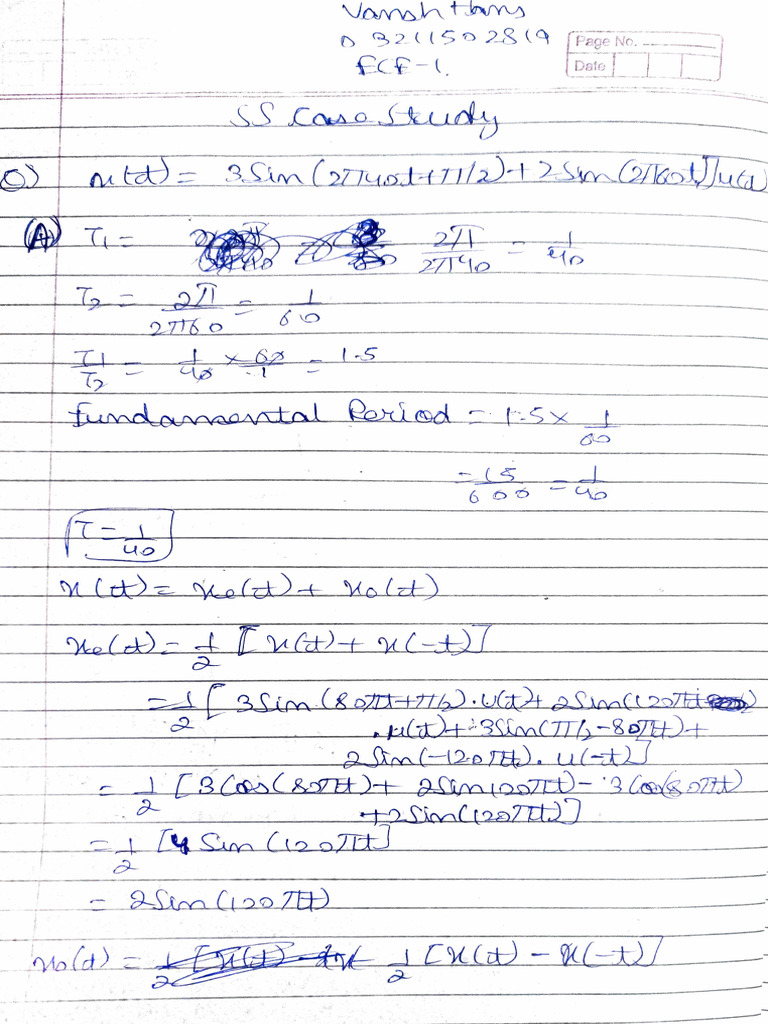 Vansh Hans
03211502819
ECE-1.
Page No.
Date
SS Case Study
Q) x(t) = 3Sin(2π40t+π/2)+2Sin(2π60t)]u(t)
(A) T1 = 2π/2π40 = 1/40
T2 = 2π/2π60 = 1/60
T1/T2 = 1/40 × 60/1 = 1.5
Fundamental Period = 1.5 × 1/60
= 15/600 = 1/40
T = 1/40
x(t) = xe(t) + xo(t)
xe(t) = 1/2 [x(t) + x(-t)]
= 1/2 [3Sin(80πt+π/2).u(t)+ 2Sin(120πt
.u(t)+ 3Sin(π/2-80πt)+
2Sin(-120πt).u(-t)]
= 1/2 [3Cos(80πt)+ 2Sin120πt - 3Cos(80πt)
+2Sin(120πt)]
= 1/2 [4 Sin(120πt]
= 2Sin(120πt)
xo(t) = 1/2 [x(t) - x(-t)]